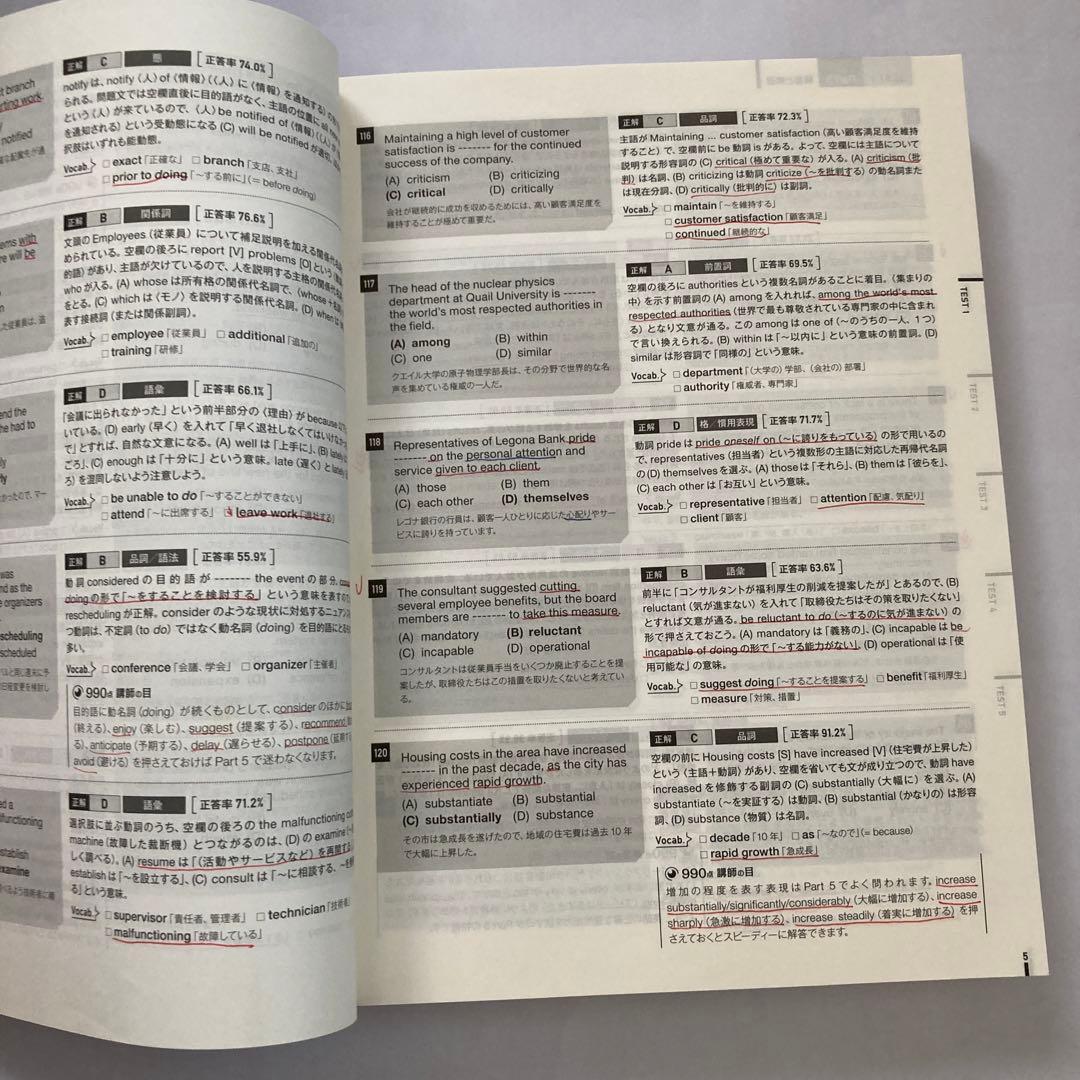 t branch
rting work.
notified
正解 C 態 [正答率 74.0%]
notify は、notify〈人〉of〈情報〉(〈人〉に〈情報〉を通知する)の
られる。問題文では空欄直後に目的語がなく、主語の位置に
という〈人〉が来ているので、〈人〉be notified of〈情報〉(〈人〉が
を通知される) という受動態になる (C) will be notified が適切。
択肢はいずれも能動態。
Vocab. □ exact「正確な」 □ branch「支店、支社」
□ prior to doing「～する前に」(= before doing)
ems with
re will be
正解 B 関係詞 [正答率 76.6%]
文頭の Employees (従業員) について補足説明を加える関係代名
められている。空欄の後ろに report [V] problems [O] という〈動
的語〉があり、主語が欠けているので、人を説明する主格の関係代名
who が入る。(A) whose は所有格の関係代名詞で、〈whose +名
をとる。(C) which は〈モノ〉を説明する関係代名詞。(D) when は
表す接続詞 (または関係副詞)。
Vocab. □ employee「従業員」 □ additional「追加の」
□ training「研修」
end the
he had to
正解 D 語彙 [正答率 66.1%]
「会議に出られなかった」という前半部分の〈理由〉が because 以下
いている。(D) early (早く) を入れて「早く退社しなくてはいけなか
で」とすれば、自然な文意になる。(A) well は「上手に」、(B) lately
ごろ」、(C) enough は「十分に」という意味。late (遅く) と lately
ろ) を混同しないよう注意しよう。
Vocab. □ be unable to do「～することができない」
□ attend「～に出席する」 □ leave work「退社する」
was
nd as the
organizers
scheduling
scheduled
正解 B 品詞／語法 [正答率 55.9%]
動詞 considered の目的語が ------- the event の部分。
doing の形で「～をすることを検討する」という意味を表すので
rescheduling が正解。consider のような現状に対処するニュアン
つ動詞は、不定詞 (to do) ではなく動名詞 (doing) を目的語にとる
多い。
Vocab. □ conference「会議、学会」 □ organizer「主催者」
990点 講師の目
目的語に動名詞 (doing) が続くものとして、consider のほかに
(終える)、enjoy (楽しむ)、suggest (提案する)、recommend
る)、anticipate (予期する)、delay (遅らせる)、postpone (延期す
avoid (避ける) を押さえておけば Part 5 で迷わなくなります。
ed a
lfunctioning
stablish
examine
正解 D 語彙 [正答率 71.2%]
選択肢に並ぶ動詞のうち、空欄の後ろの the malfunctioning
machine (故障した裁断機) とつながるのは、(D) の examine (
しく調べる)。(A) resume は「(活動やサービスなど) を再開する
establish は「～を設立する」、(C) consult は「～に相談する、～を
る」という意味。
Vocab. □ supervisor「責任者、管理者」 □ technician「技術者」
□ malfunctioning「故障している」
116 Maintaining a high level of customer
satisfaction is ------- for the continued
success of the company.
(A) criticism (B) criticizing
(C) critical (D) critically
会社が継続的に成功を収めるためには、高い顧客満足度を
維持することが極めて重要だ。
正解 C 品詞 [正答率 72.3%]
主語が Maintaining ... customer satisfaction (高い顧客満足度を維持
すること) で、空欄前に be 動詞 is がある。よって、空欄には主語について
説明する形容詞の (C) critical (極めて重要な) が入る。(A) criticism (批
判) は名詞、(B) criticizing は動詞 criticize (～を批判する) の動名詞また
は現在分詞、(D) critically (批判的に) は副詞。
Vocab. □ maintain「～を維持する」
□ customer satisfaction「顧客満足」
□ continued「継続的な」
117 The head of the nuclear physics
department at Quail University is -------
the world's most respected authorities in
the field.
(A) among (B) within
(C) one (D) similar
クエイル大学の原子物理学部長は、その分野で世界的な名
声を集めている権威の一人だ。
正解 A 前置詞 [正答率 69.5%]
空欄の後ろに authorities という複数名詞があることに着目。〈集まりの
中〉を示す前置詞の (A) among を入れれば、among the world's most
respected authorities (世界で最も尊敬されている専門家の中に含まれ
る) となり文意が通る。この among は one of (～のうちの一人、1つ)
で言い換えられる。(B) within は「～以内に」という意味の前置詞。(D)
similar は形容詞で「同様の」という意味。
Vocab. □ department「(大学の) 学部、(会社の) 部署」
□ authority「権威者、専門家」
118 Representatives of Legona Bank pride
------- on the personal attention and
service given to each client.
(A) those (B) them
(C) each other (D) themselves
レゴナ銀行の行員は、顧客一人ひとりに応じた心配りやサー
ビスに誇りを持っています。
正解 D 格／慣用表現 [正答率 71.7%]
動詞 pride は pride oneself on (～に誇りをもっている) の形で用いるの
で、representatives (担当者) という複数形の主語に対応した再帰代名詞
の (D) themselves を選ぶ。(A) those は「それら」、(B) them は「彼らを」、
(C) each other は「お互い」という意味。
Vocab. □ representative「担当者」 □ attention「配慮、気配り」
□ client「顧客」
119 The consultant suggested cutting
several employee benefits, but the board
members are ------- to take this measure.
(A) mandatory (B) reluctant
(C) incapable (D) operational
コンサルタントは従業員手当をいくつか廃止することを提
案したが、取締役たちはこの措置を取りたくないと考えてい
る。
正解 B 語彙 [正答率 63.6%]
前半に「コンサルタントが福利厚生の削減を提案したが」とあるので、(B)
reluctant (気が進まない) を入れて「取締役たちはその策を取りたくない」
とすれば文意が通る。be reluctant to do (～するのに気が進まない) の
形で押さえておこう。(A) mandatory は「義務の」、(C) incapable は be
incapable of doing の形で「～する能力がない」、(D) operational は「使
用可能な」の意味。
Vocab. □ suggest doing「～することを提案する」 □ benefit「福利厚生」
□ measure「対策、措置」
120 Housing costs in the area have increased
------- in the past decade, as the city has
experienced rapid growth.
(A) substantiate (B) substantial
(C) substantially (D) substance
その市は急成長を遂げたので、地域の住宅費は過去 10 年
で大幅に上昇した。
正解 C 品詞 [正答率 91.2%]
空欄の前に Housing costs [S] have increased [V] (住宅費が上昇した)
という〈主語＋動詞〉があり、空欄を省いても文が成り立つので、動詞 have
increased を修飾する副詞の (C) substantially (大幅に) を選ぶ。(A)
substantiate (～を実証する) は動詞、(B) substantial (かなりの) は形容
詞、(D) substance (物質) は名詞。
Vocab. □ decade「10年」 □ as「～なので」(= because)
□ rapid growth「急成長」
990点 講師の目
増加の程度を表す表現は Part 5 でよく問われます。increase
substantially/significantly/considerably (大幅に増加する)、increase
sharply (急激に増加する)、increase steadily (着実に増加する) を押
さえておくとスピーディーに解答できます。
TEST 1
TEST 2
TEST 3
TEST 4
TEST 5
5